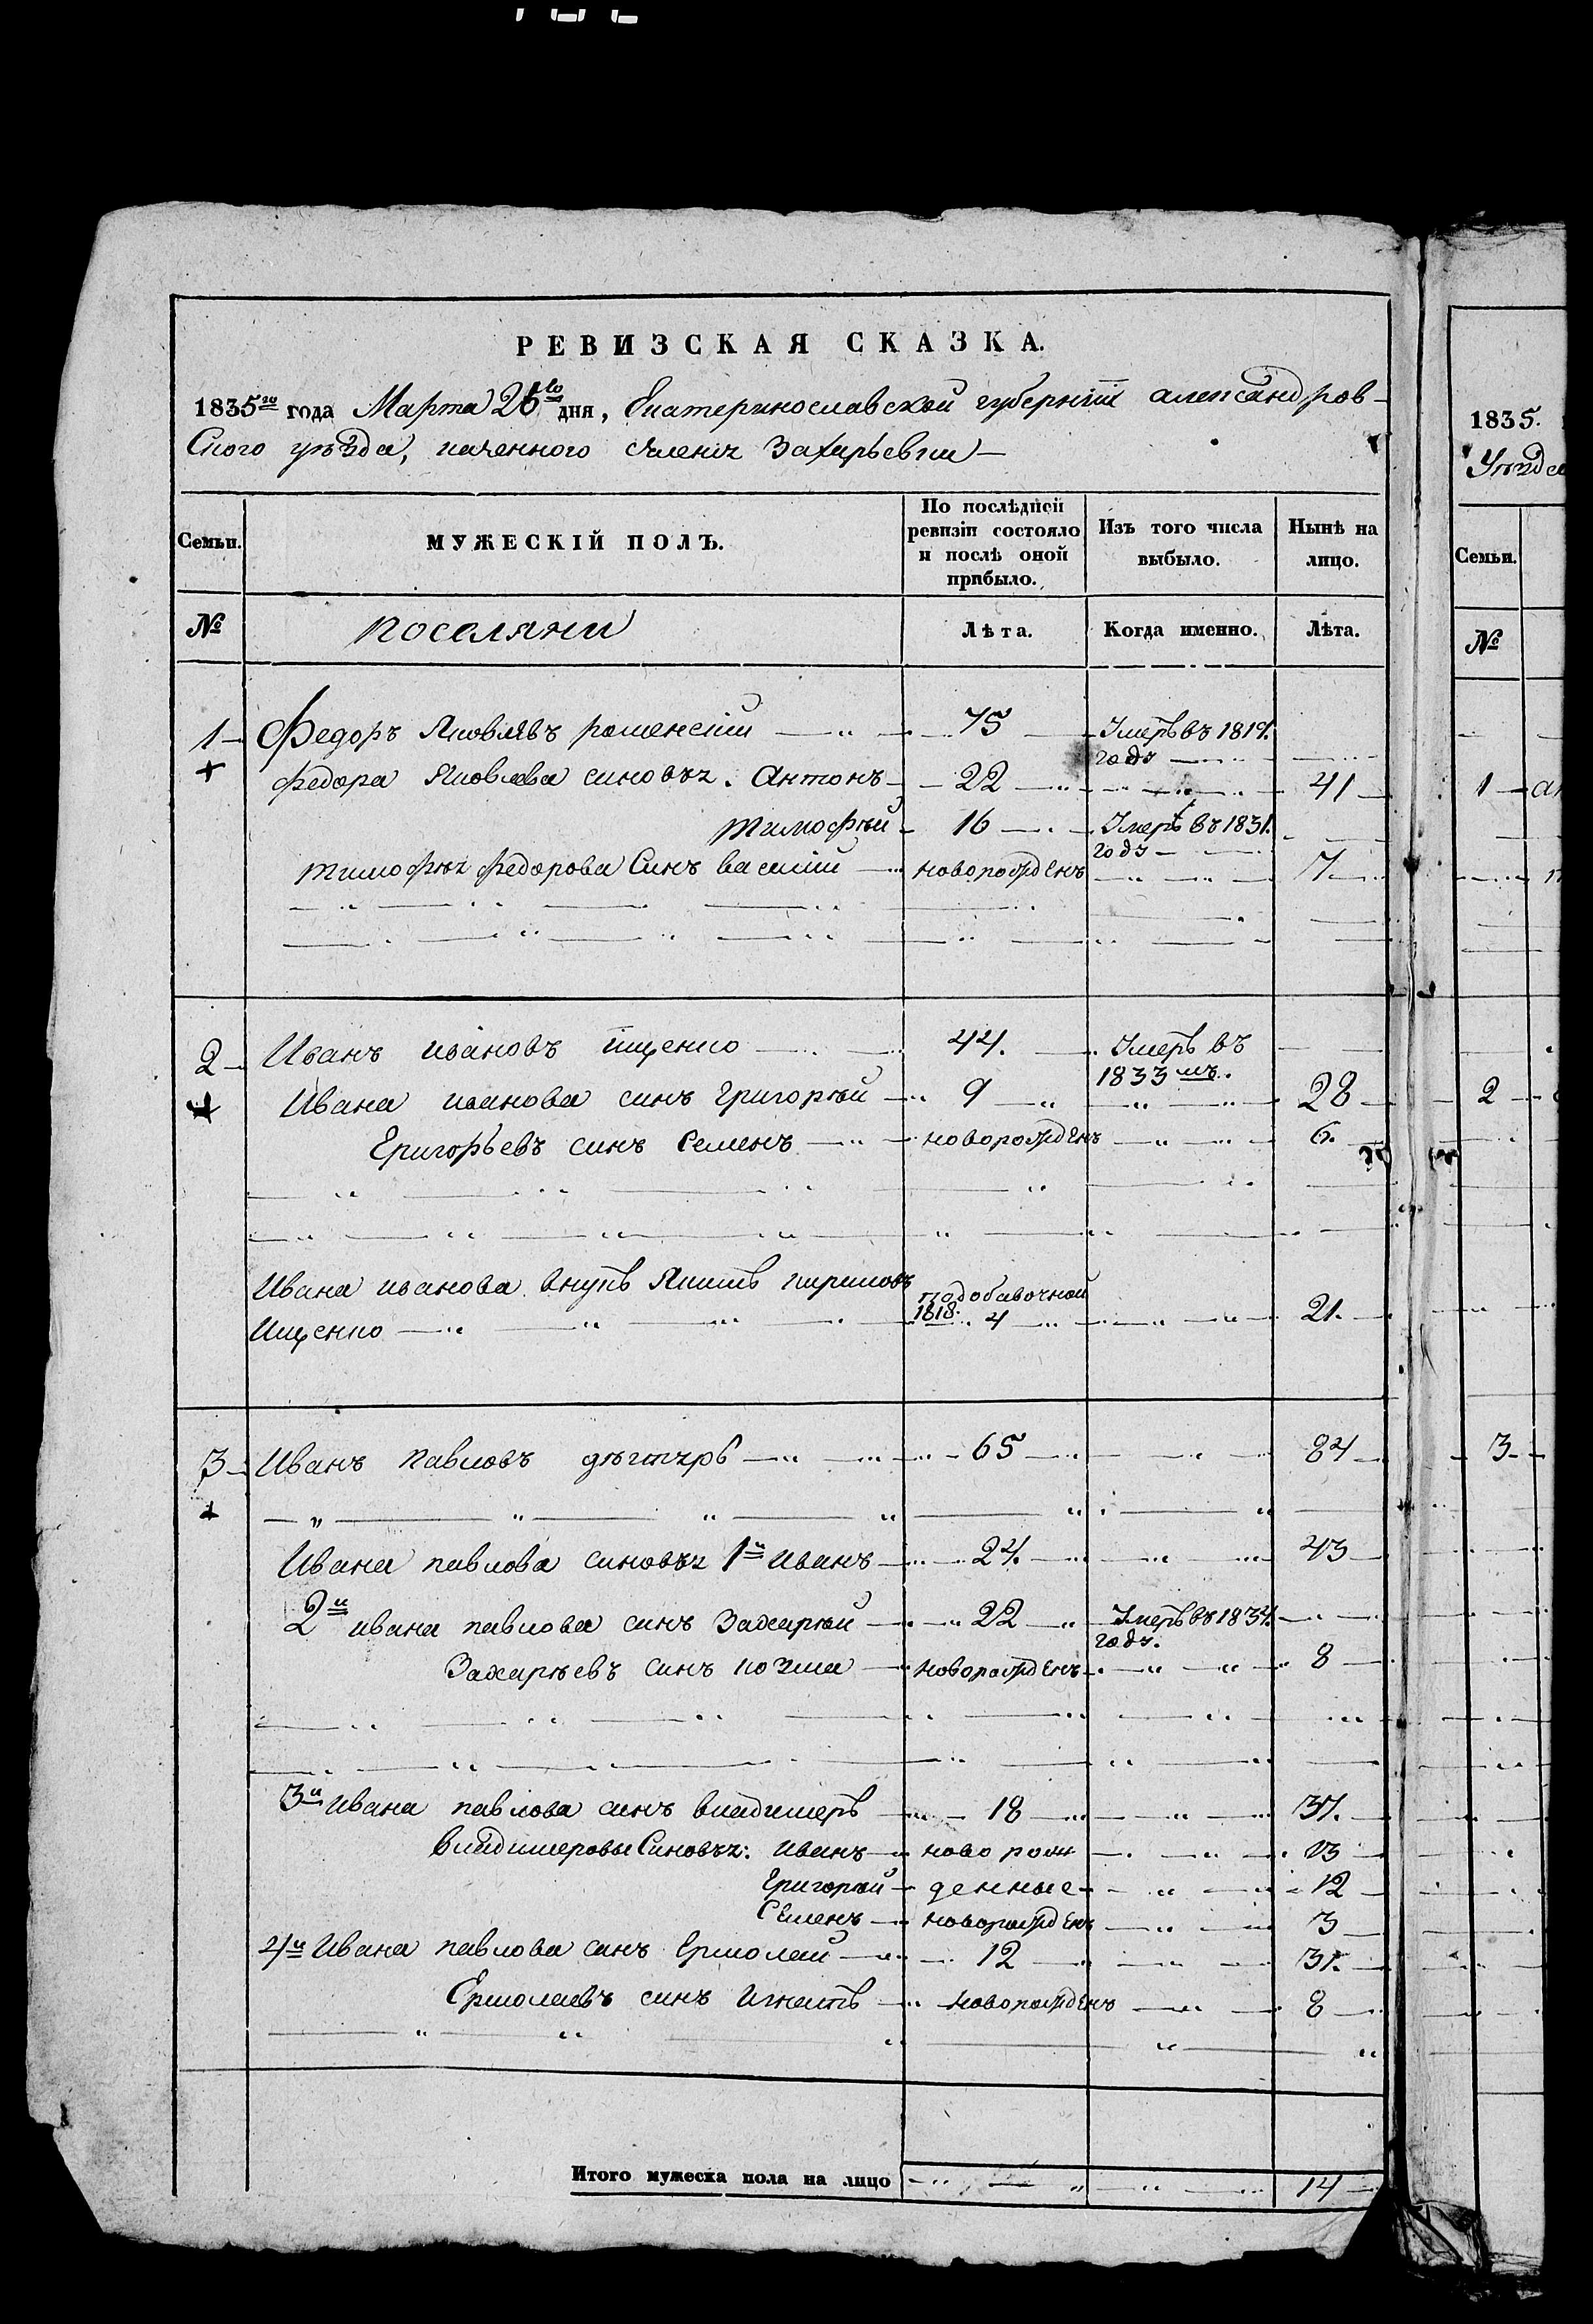 РЕВИЗСКАЯ СКАЗКА.
1835го года Марта 26го дня, Екатеринославской губернии александров-
Ского уѣзда, казенного селения Захарьевки
Семьи. МУЖЕСКІЙ ПОЛЪ. По послѣдней ревизіи состояло и послѣ оной прибыло. Изъ того числа выбыло. Нынѣ на лицо.
№ поселяни Лѣта. Когда именно. Лѣта.
1 Федоръ Яковлевъ 75 Умеръ въ 1819. годъ
Федора Яковлева синовья. Антонъ 22 41
Тимофѣй 16 Умеръ въ 1831. годъ
Тимофѣя Федорова Синъ василий новорожденъ 7
2 Иванъ ивановъ ищенко 44. Умеръ въ 1833мъ.
Ивана иванова синъ григорѣй 9 28
Григорьевъ синъ Семенъ новорожденъ 6.
Ивана иванова внукъ Якимъ кириловъ
Ищенко подобавочной 1818. 4 21.
3 Иванъ Павловъ дѣгтярь 65 84
Ивана павлова синовья 1й иванъ 24. 43
2й ивана павлова синъ Захарѣй 22 Умеръ въ 1834. годъ.
Захарѣевъ синъ козма новорожденъ 8
3й Ивана павлова синъ владимеръ 18 37.
владимеровы Синовья: иванъ ново рож 13
Григорѣй денные 12
Семенъ новорожденъ 3
4й Ивана павлова синъ Ермолай 12 31.
Ермолаевъ синъ Игнатъ новорожденъ 8
Итого мужеска пола на лицо 14
1835.
Уѣзда
Семьи.
№
1
2
3